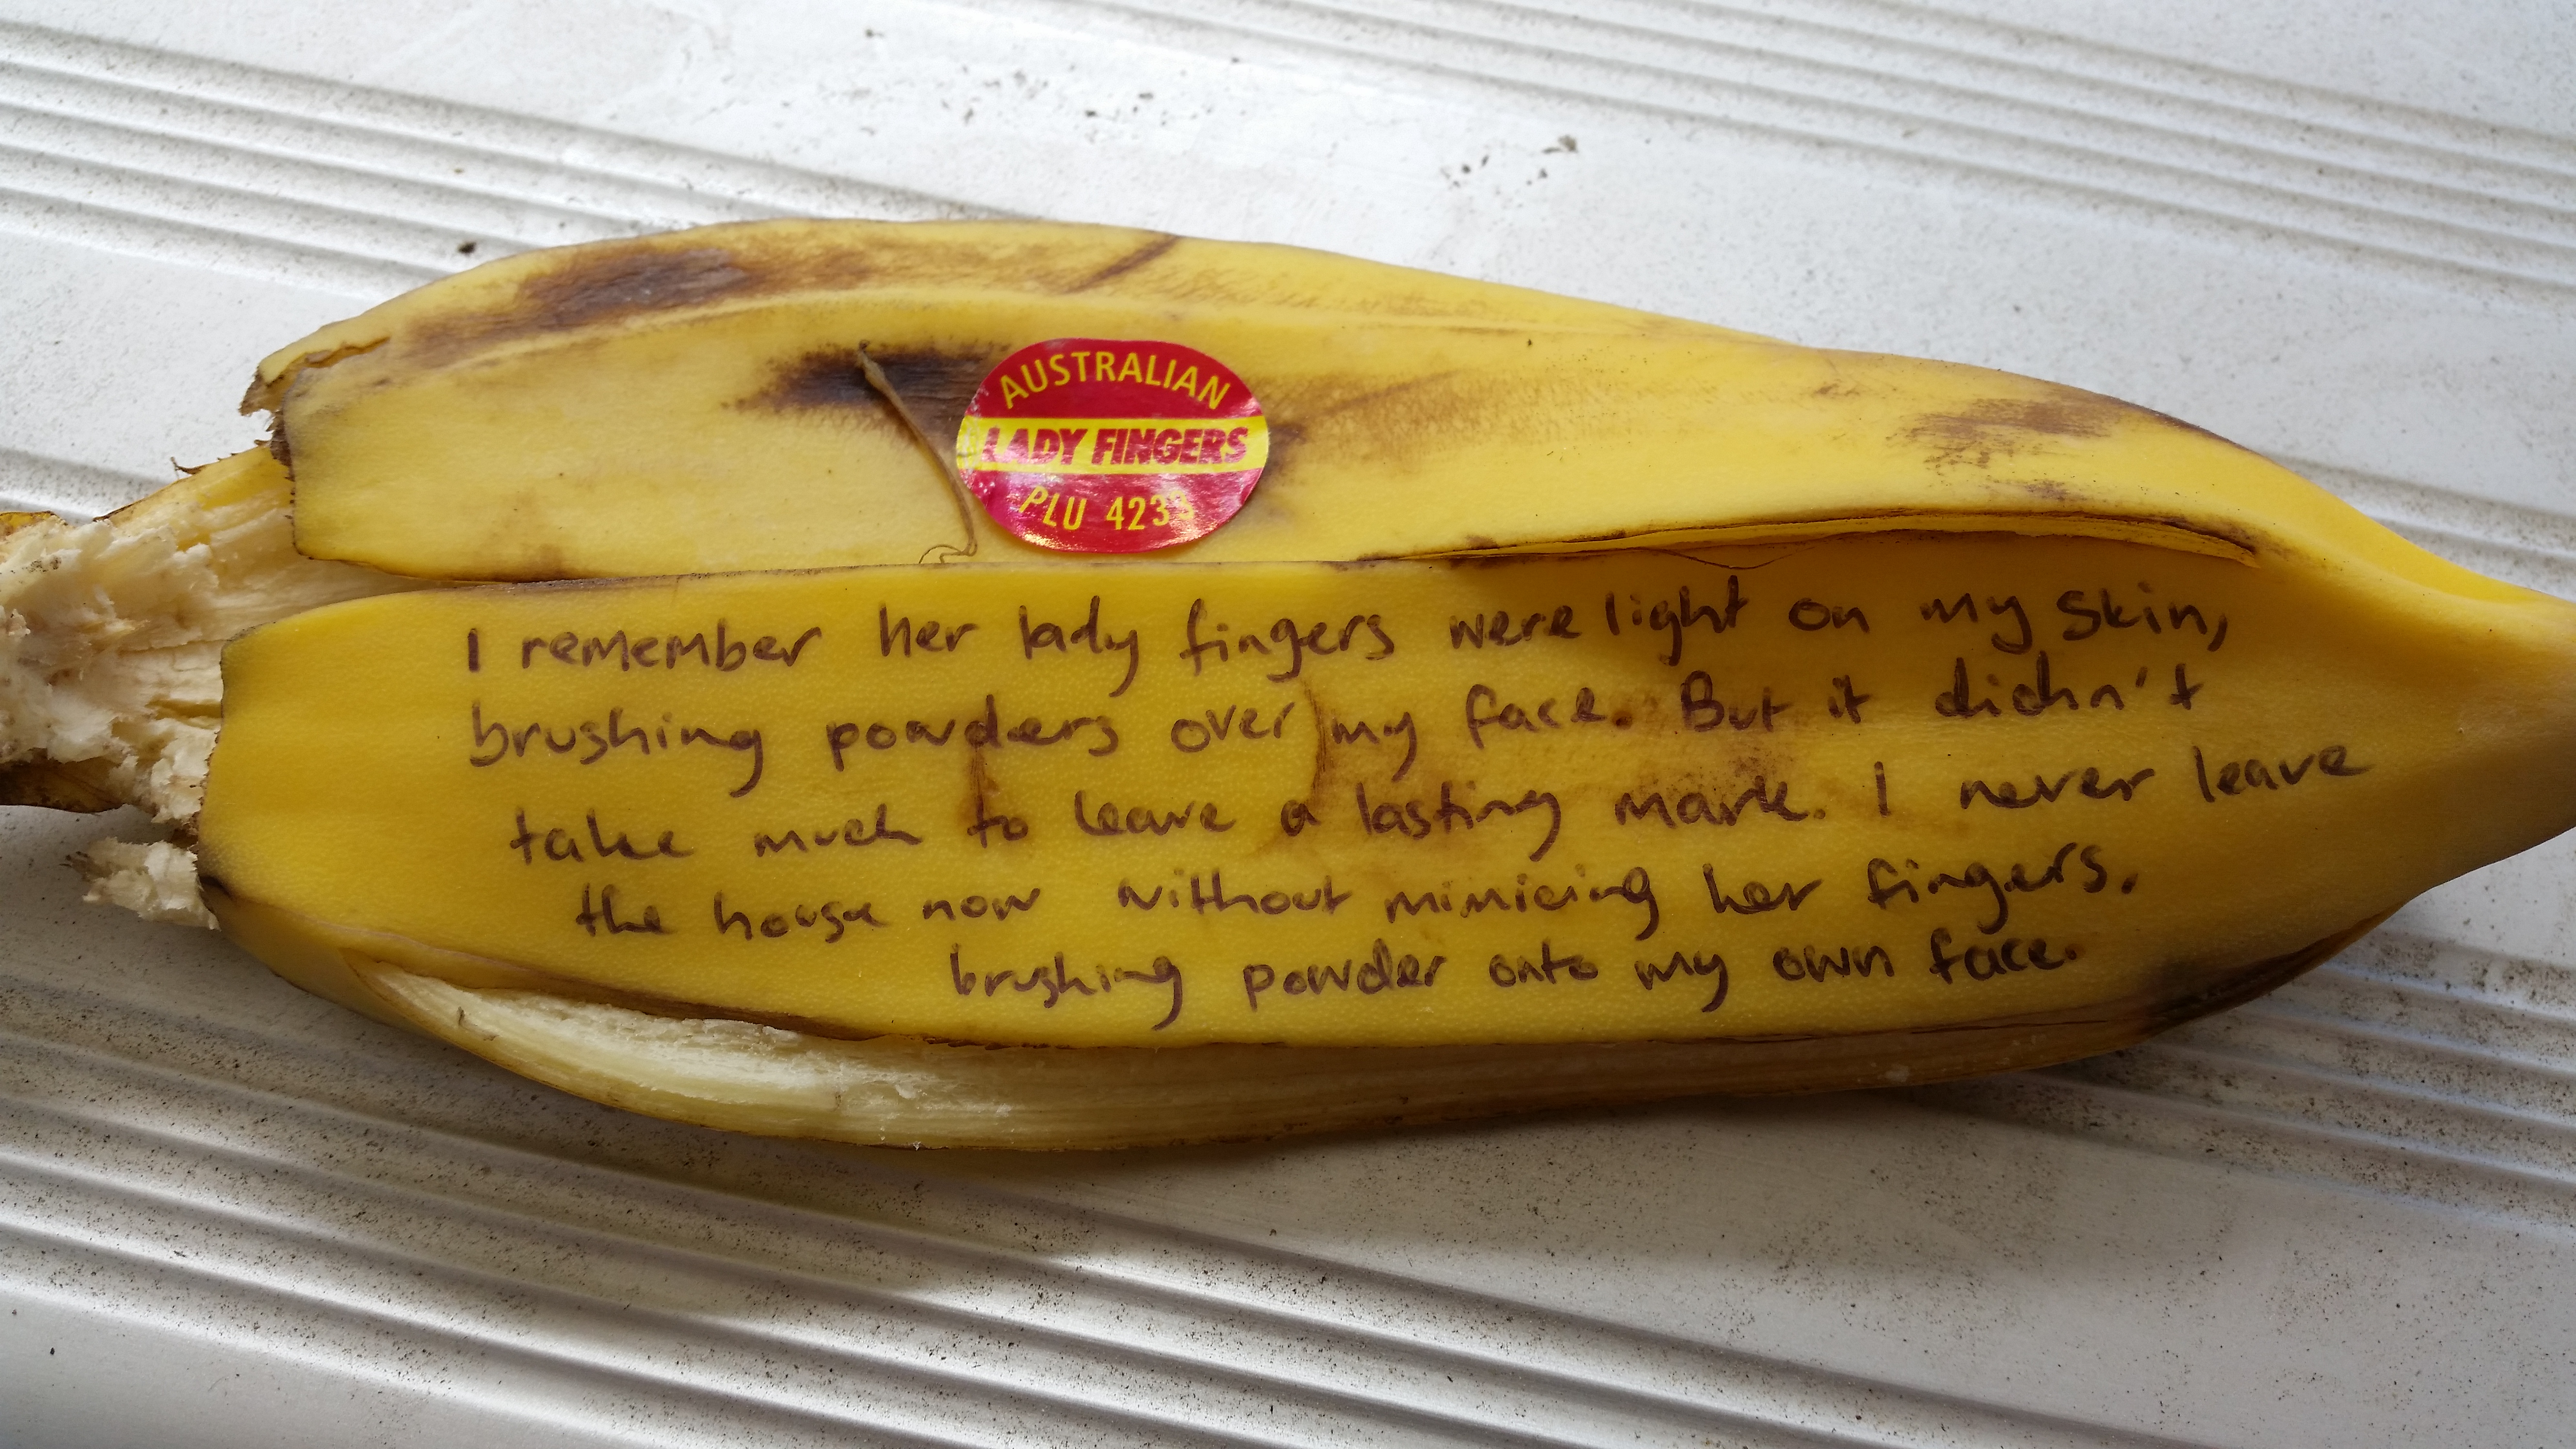 AUSTRALIAN
LADY FINGERS
PLU 4233
I remember her lady fingers were light on my skin,
brushing powders over my face. But it didn't
take much to leave a lasting mark. I never leave
the house now without mimicing her fingers,
brushing powder onto my own face.